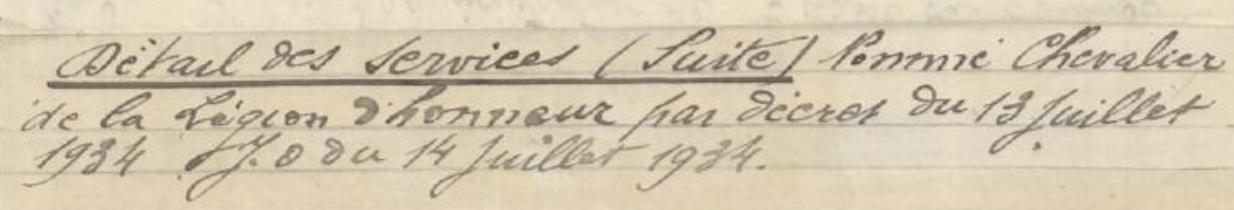 Détail des services (Suite) Nommé Chevalier
de la Légion d'honneur par décret du 13 juillet
1934 J.O du 14 juillet 1934.